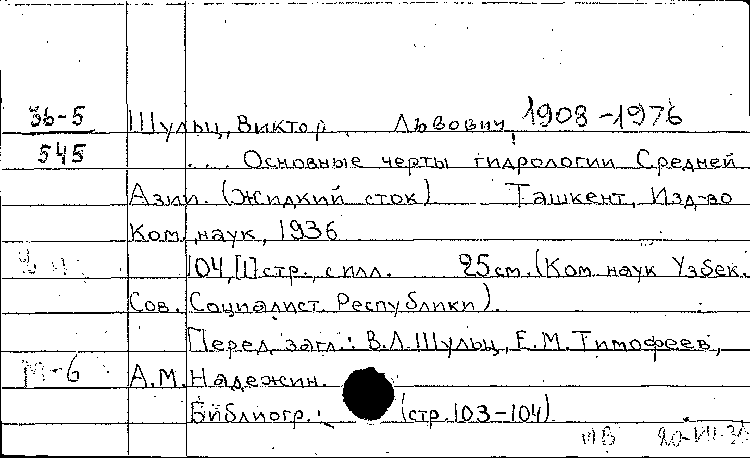 36-5 Шульц, Виктор Львович, 1908-1976
545 ... Основные черты гидрологии Средней
Азии. (Жидкий сток) Ташкент, Изд-во
Ком. наук, 1936
104, [1] стр., с илл. 25 см. (Ком. наук Узбек.
Сов. Социалист. Республики).
Перед загл.: В.Л. Шульц, Е.М. Тимофеев,
М-6 А.М. Надежин.
Библиогр.: (стр. 103-104)